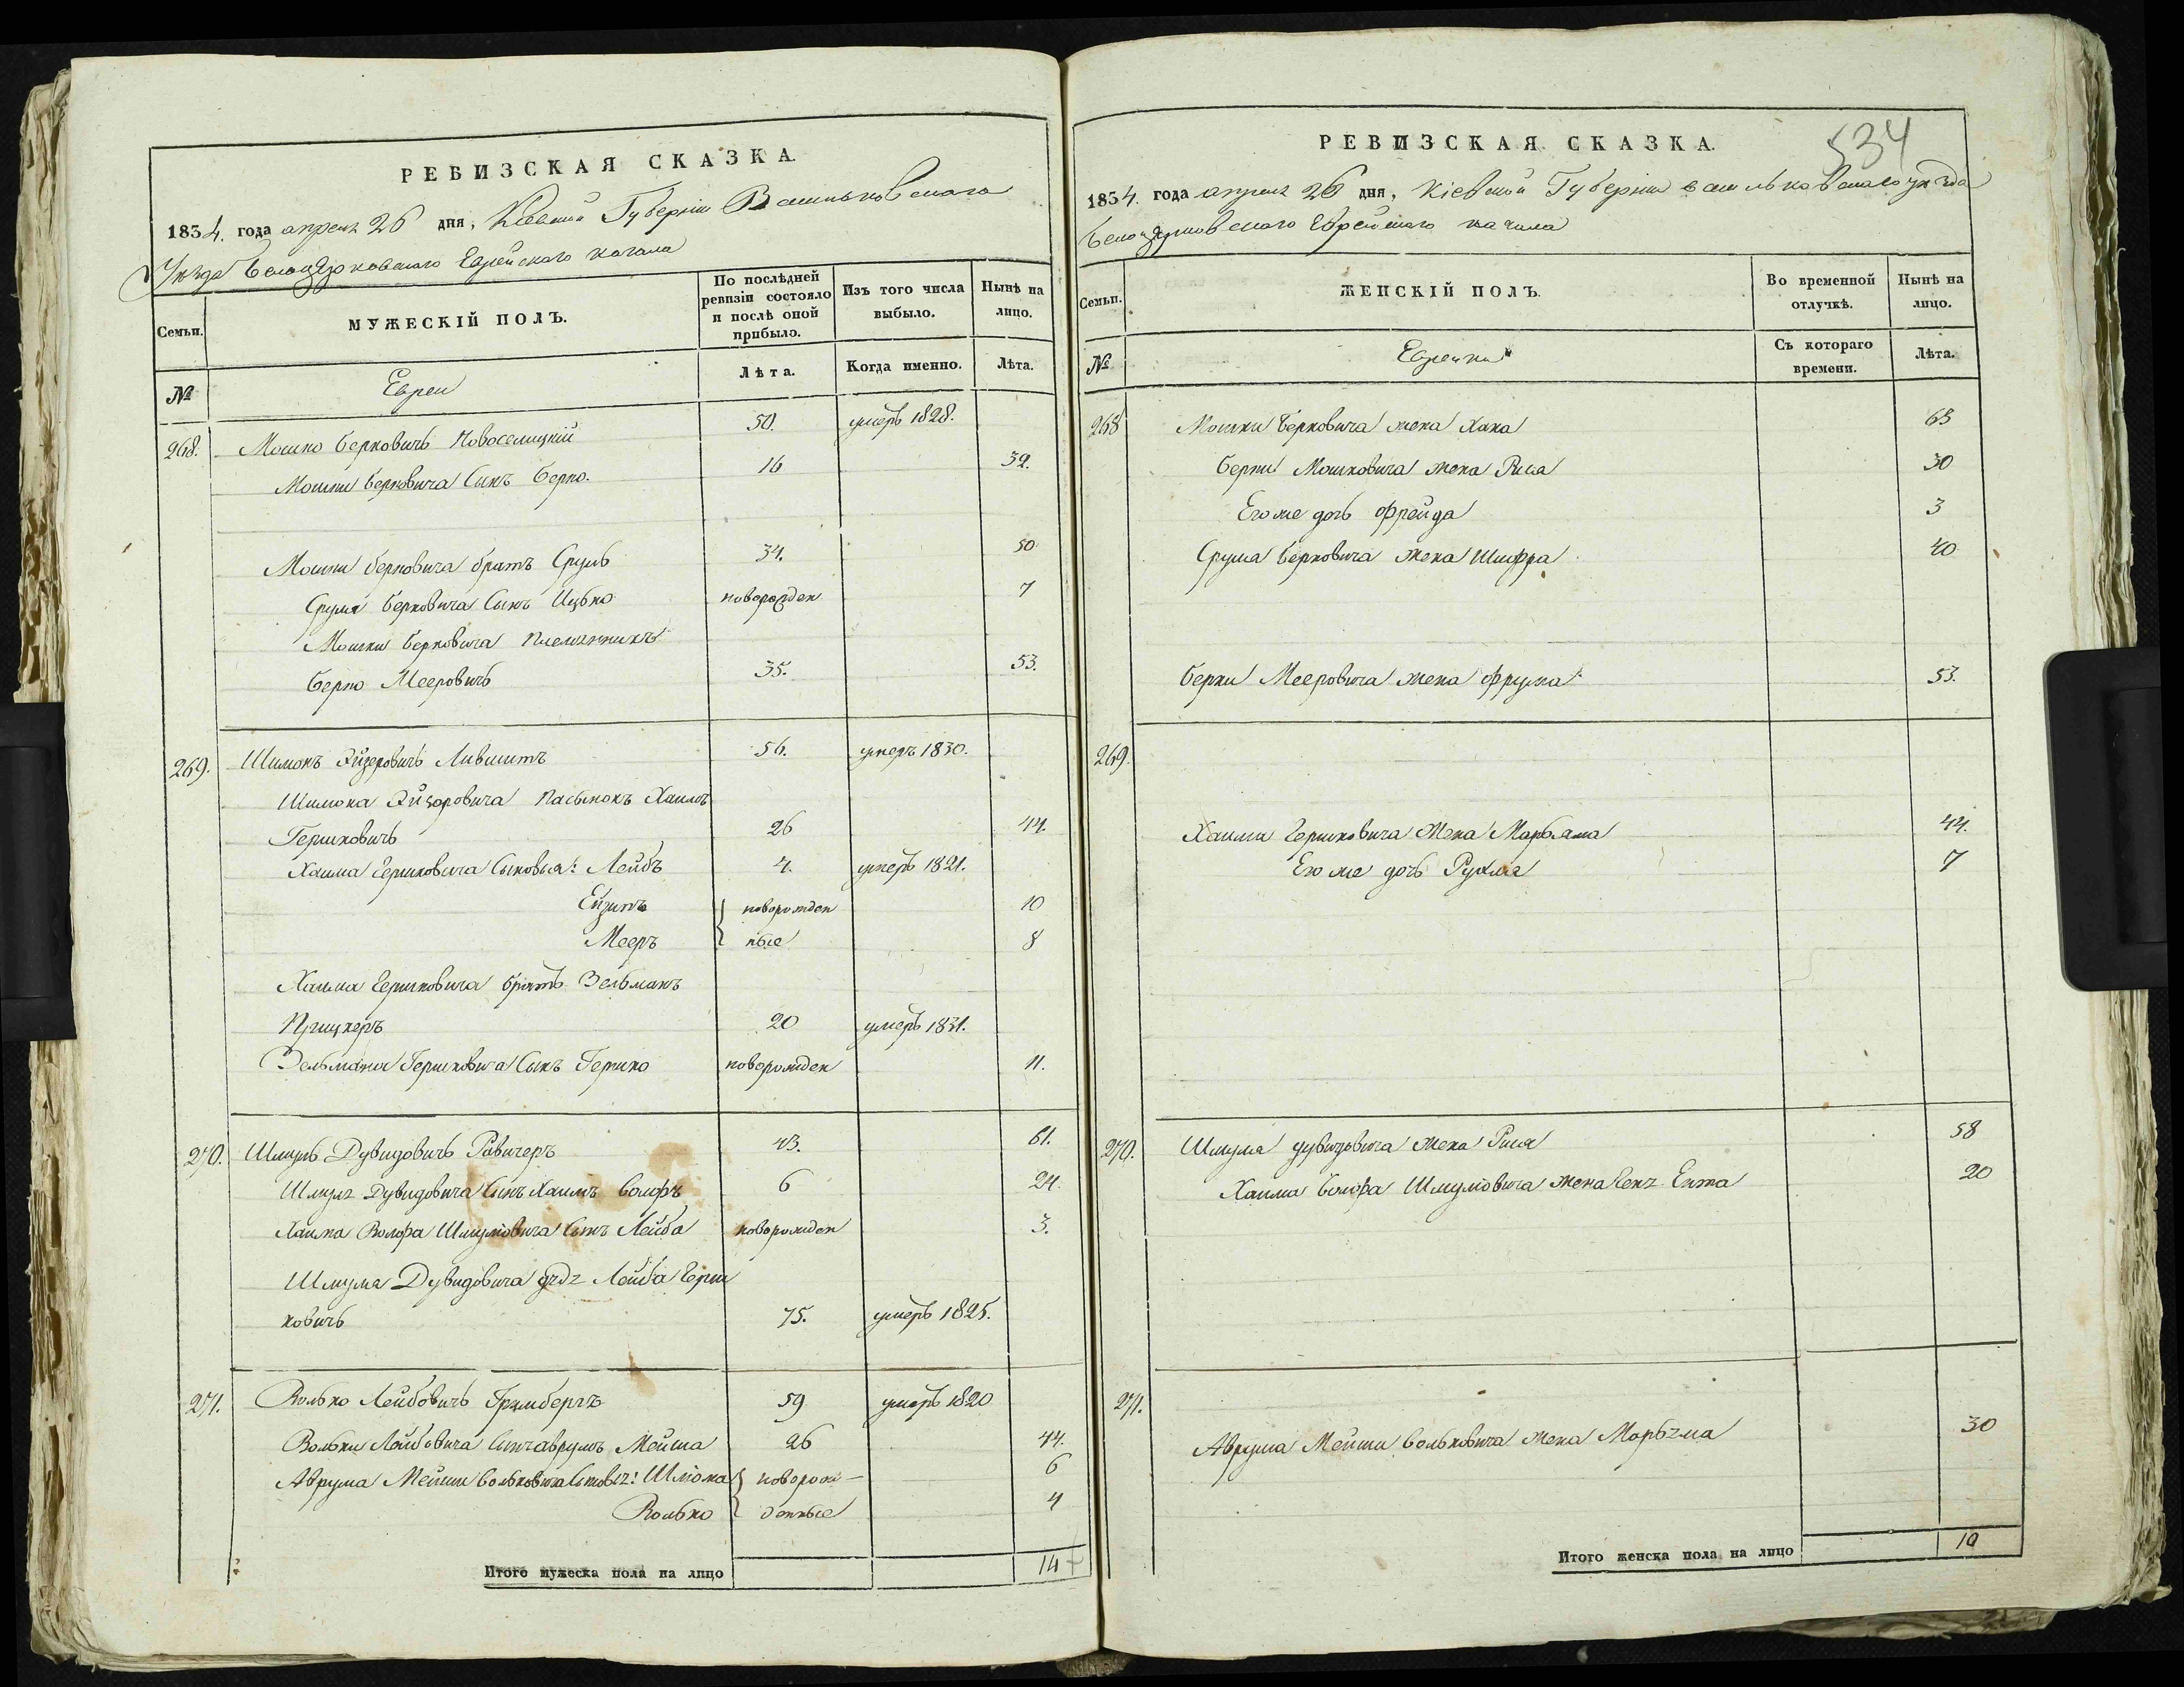 РЕВИЗСКАЯ СКАЗКА.
1834. года апреля 26 дня, Киевской Губернии Васильковскаго
Уезда Белоцерковскаго Еврейскаго кагала
Семьи.
МУЖЕСКІЙ ПОЛЪ.
По послѣдней ревизіи состояло и послѣ оной прибыло.
Изъ того числа выбыло.
Нынѣ на лицо.
№
Евреи
Лѣта.
Когда именно.
Лѣта.
268. Мошко Берковичь Новоселицкій 50. умеръ 1828.
Мошки Берковича Сынъ Берко. 16 32.
Мошки Берковича братъ Сруль 34. 50
Сруля Берковича Сынъ Ицько новорожден 7
Мошки Берковича племянникъ
Берко Мееровичь 35. 53.
269. Шимонъ Эйзеровичь Лившитъ 56. умеръ 1830.
Шимона Эйзоровича пасынокъ Хаимъ
Гершковичь 26 44.
Хаима Гершковича Сыновья: Лейбъ 4. умеръ 1821.
Ейзикъ новорожден 10
Мееръ ные 8
Хаима Гершковича братъ Зельманъ
Прицкеръ 20 умеръ 1831.
Зельмана Гершковича Сынъ Гершко новорожден 11.
270. Шмуль Дувидовичь Равичеръ 43. 61.
Шмуля Дувидовича Сынъ Хаимъ Волфъ 6 24.
Хаима Волфа Шмуловича Сынъ Лейба новорожден 3.
Шмуля Дувидовича дядя Лейба Герш
ковичь 75. умеръ 1825.
271. Волько Лейбовичь Гримбергъ 59 умеръ 1820
Вольки Лейбовича Сынъ Аврумъ Мейша 26 44.
Аврума Мейши Вольковича Сыновья: Шлиома новорож- 6
Волько денные 4
Итого мужеска пола на лицо 14
534
РЕВИЗСКАЯ СКАЗКА.
1834. года апреля 26 дня, Кіевской Губерніи васильковскаго уезда
Белоцерковскаго Еврейскаго кагала
Семьи.
ЖЕНСКІЙ ПОЛЪ.
Во временной отлучкѣ.
Нынѣ на лицо.
№
Еврейки
Съ котораго времени.
Лѣта.
268 Мошки Берковича жена Хана 63
Берки Мошковича жена Рися 30
Его же дочь Фрейда 3
Сруля Берковича жена Шифра 40
Берки Мееровича жена Фрума 53.
269.
Хаима Гершковича жена Марьяма 44.
Его же дочь Рухля 7
270. Шмуля дувидовича жена Рися 58
Хаима Волфа Шмуловича жена Ента 20
271.
Аврума Мейши Вольковича жена Марьяма 30
Итого женска пола на лицо 10